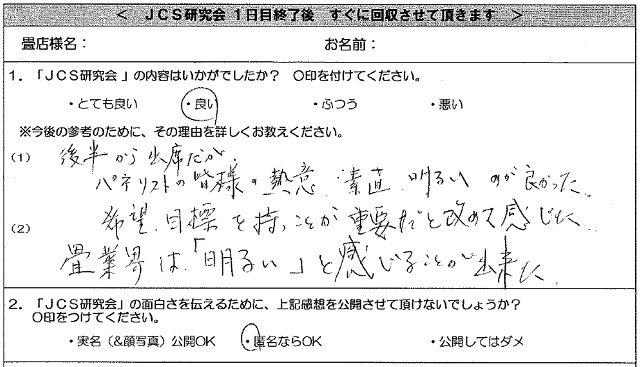 < JCS研究会 1日目終了後 すぐに回収させて頂きます >
畳店様名： お名前：
1．「JCS研究会」の内容はいかがでしたか？ ○印を付けてください。
・とても良い ・良い ・ふつう ・悪い
※今後の参考のために、その理由を詳しくお教えください。
(1) 後半から出席だが、
パネリストの皆様の熱意、素直、明るい のが良かった。
希望、目標を持つことが重要だと改めて感じた。
(2) 畳業界は、「明るい」と感じることが出来た。
2．「JCS研究会」の面白さを伝えるために、上記感想を公開させて頂けないでしょうか？
○印をつけてください。
・実名（&顔写真）公開OK ・匿名ならOK ・公開してはダメ